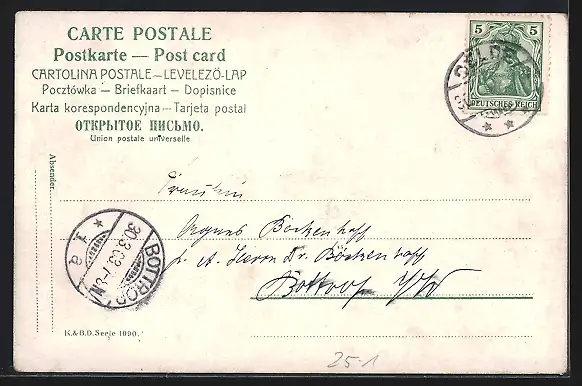 CARTE POSTALE
Postkarte — Post card
CARTOLINA POSTALE – LEVELEZŐ-LAP
Pocztówka – Briefkaart – Dopisnice
Karta korespondencyjna – Tarjeta postal
ОТКРЫТОЕ ПИСЬМО.
Union postale universelle
5 5
DEUTSCHES REICH
Absender.
Fräulein
Agnes Böckenhoff
p. A. Herrn Dr. Böckenhoff
Bottrop i/W
BOTTROP
30.3.03.7-8N
* 1 a
K.&B.D. Serie 1090.
25-1